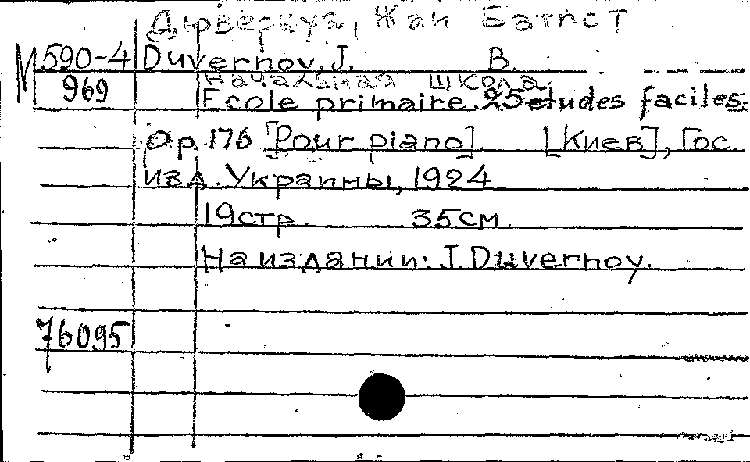 Дювернуа, Жан Батист
М 590-4 Duvernoy, J. B.
Начальная школа
969 Ecole primaire. 25 etudes faciles.
Op. 176 [Pour piano]. [Киев], Гос.
изд. Украины, 1924
19 стр. 35 см.
На издании: J. Duvernoy.
76095